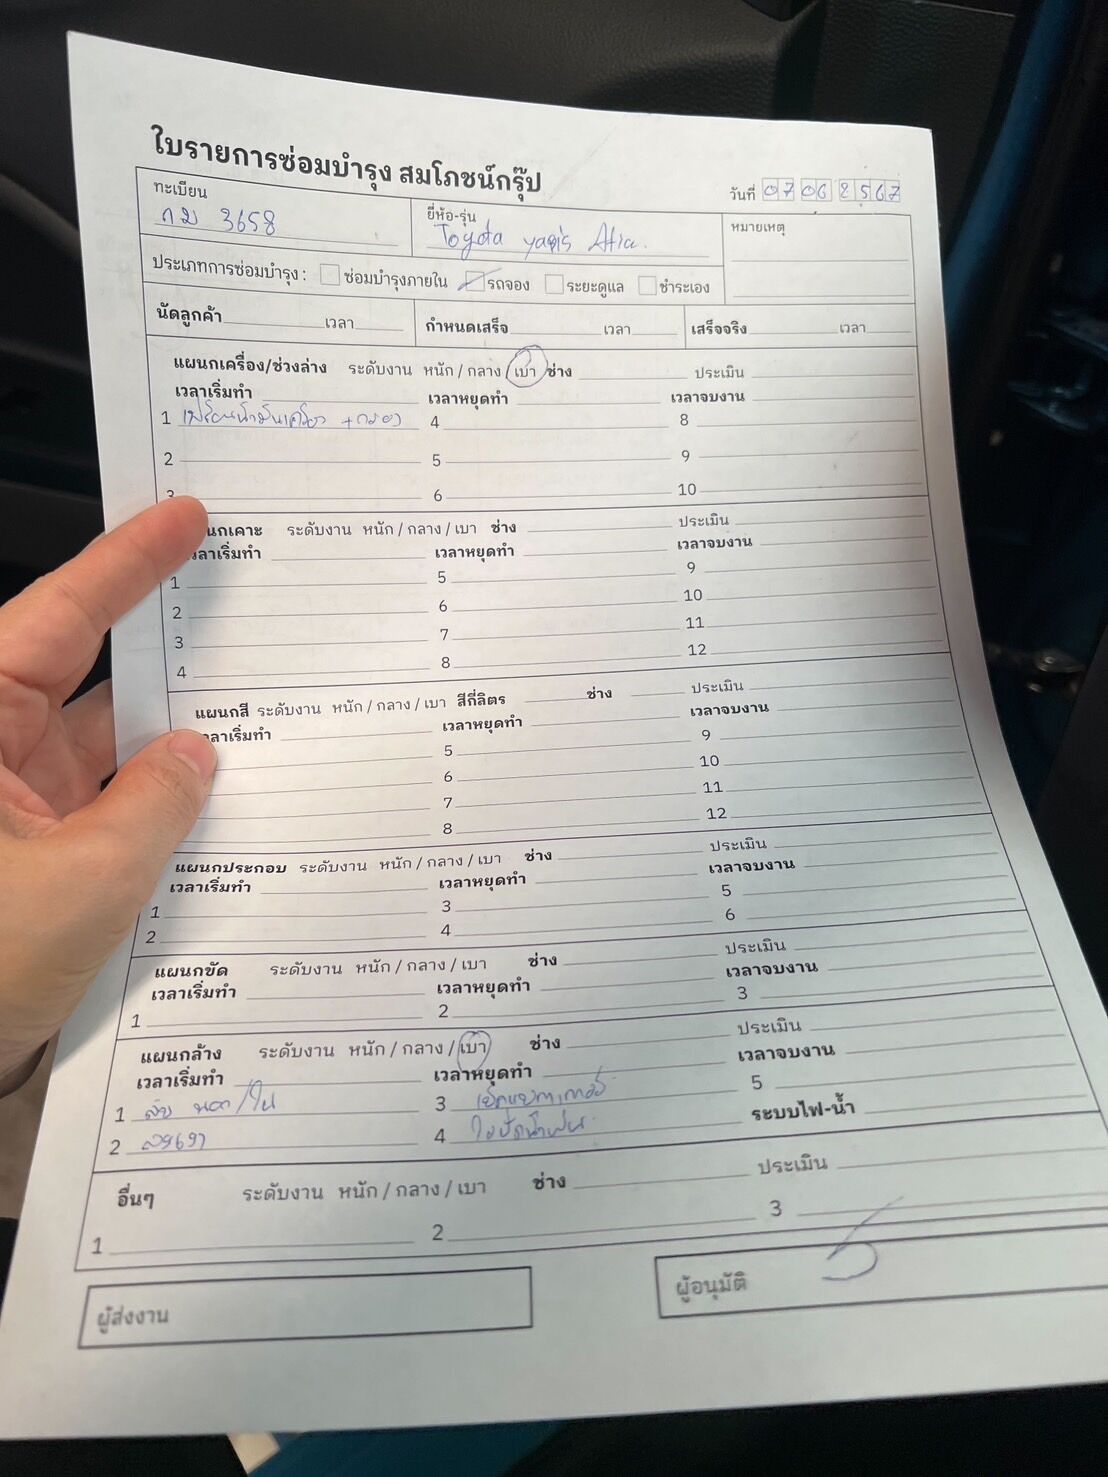 ใบรายการซ่อมบำรุง สมโภชน์กรุ๊ป
วันที่ 07 06 2567
ทะเบียน กม 3658
ยี่ห้อ-รุ่น Toyota yaris Ativ.
หมายเหตุ
ประเภทการซ่อมบำรุง : ซ่อมบำรุงภายใน รถจอง ระยะดูแล ชำระเอง
นัดลูกค้า เวลา กำหนดเสร็จ เวลา เสร็จจริง เวลา
แผนกเครื่อง/ช่วงล่าง ระดับงาน หนัก / กลาง / เบา ช่าง ประเมิน
เวลาเริ่มทำ เวลาหยุดทำ เวลาจบงาน
1 เปลี่ยนน้ำมันเครื่อง + กรอง 4 8
2 5 9
3 6 10
แผนกเคาะ ระดับงาน หนัก / กลาง / เบา ช่าง ประเมิน
เวลาเริ่มทำ เวลาหยุดทำ เวลาจบงาน
1 5 9
2 6 10
3 7 11
4 8 12
แผนกสี ระดับงาน หนัก / กลาง / เบา สีกี่ลิตร ช่าง ประเมิน
เวลาเริ่มทำ เวลาหยุดทำ เวลาจบงาน
5 9
6 10
7 11
8 12
แผนกประกอบ ระดับงาน หนัก / กลาง / เบา ช่าง ประเมิน
เวลาเริ่มทำ เวลาหยุดทำ เวลาจบงาน
1 3 5
2 4 6
แผนกขัด ระดับงาน หนัก / กลาง / เบา ช่าง ประเมิน
เวลาเริ่มทำ เวลาหยุดทำ เวลาจบงาน
1 2 3
แผนกล้าง ระดับงาน หนัก / กลาง / เบา ช่าง ประเมิน
เวลาเริ่มทำ เวลาหยุดทำ เวลาจบงาน
1 ล้าง นอก/ใน 3 5
2 4 ใบปัดน้ำฝน ระบบไฟ-น้ำ
อื่นๆ ระดับงาน หนัก / กลาง / เบา ช่าง ประเมิน
1 2 3
ผู้ส่งงาน ผู้อนุมัติ